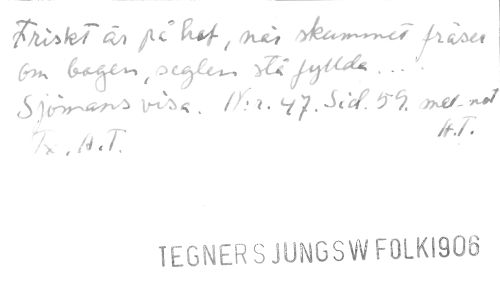 Friskt är på haf, när skummet fräser
om bogen, seglen stå fyllda....
Sjömans visa. N:r. 47. Sid. 59. mel. not
Tx. A.T. A.T.
TEGNERSJUNGSWFOLKI906